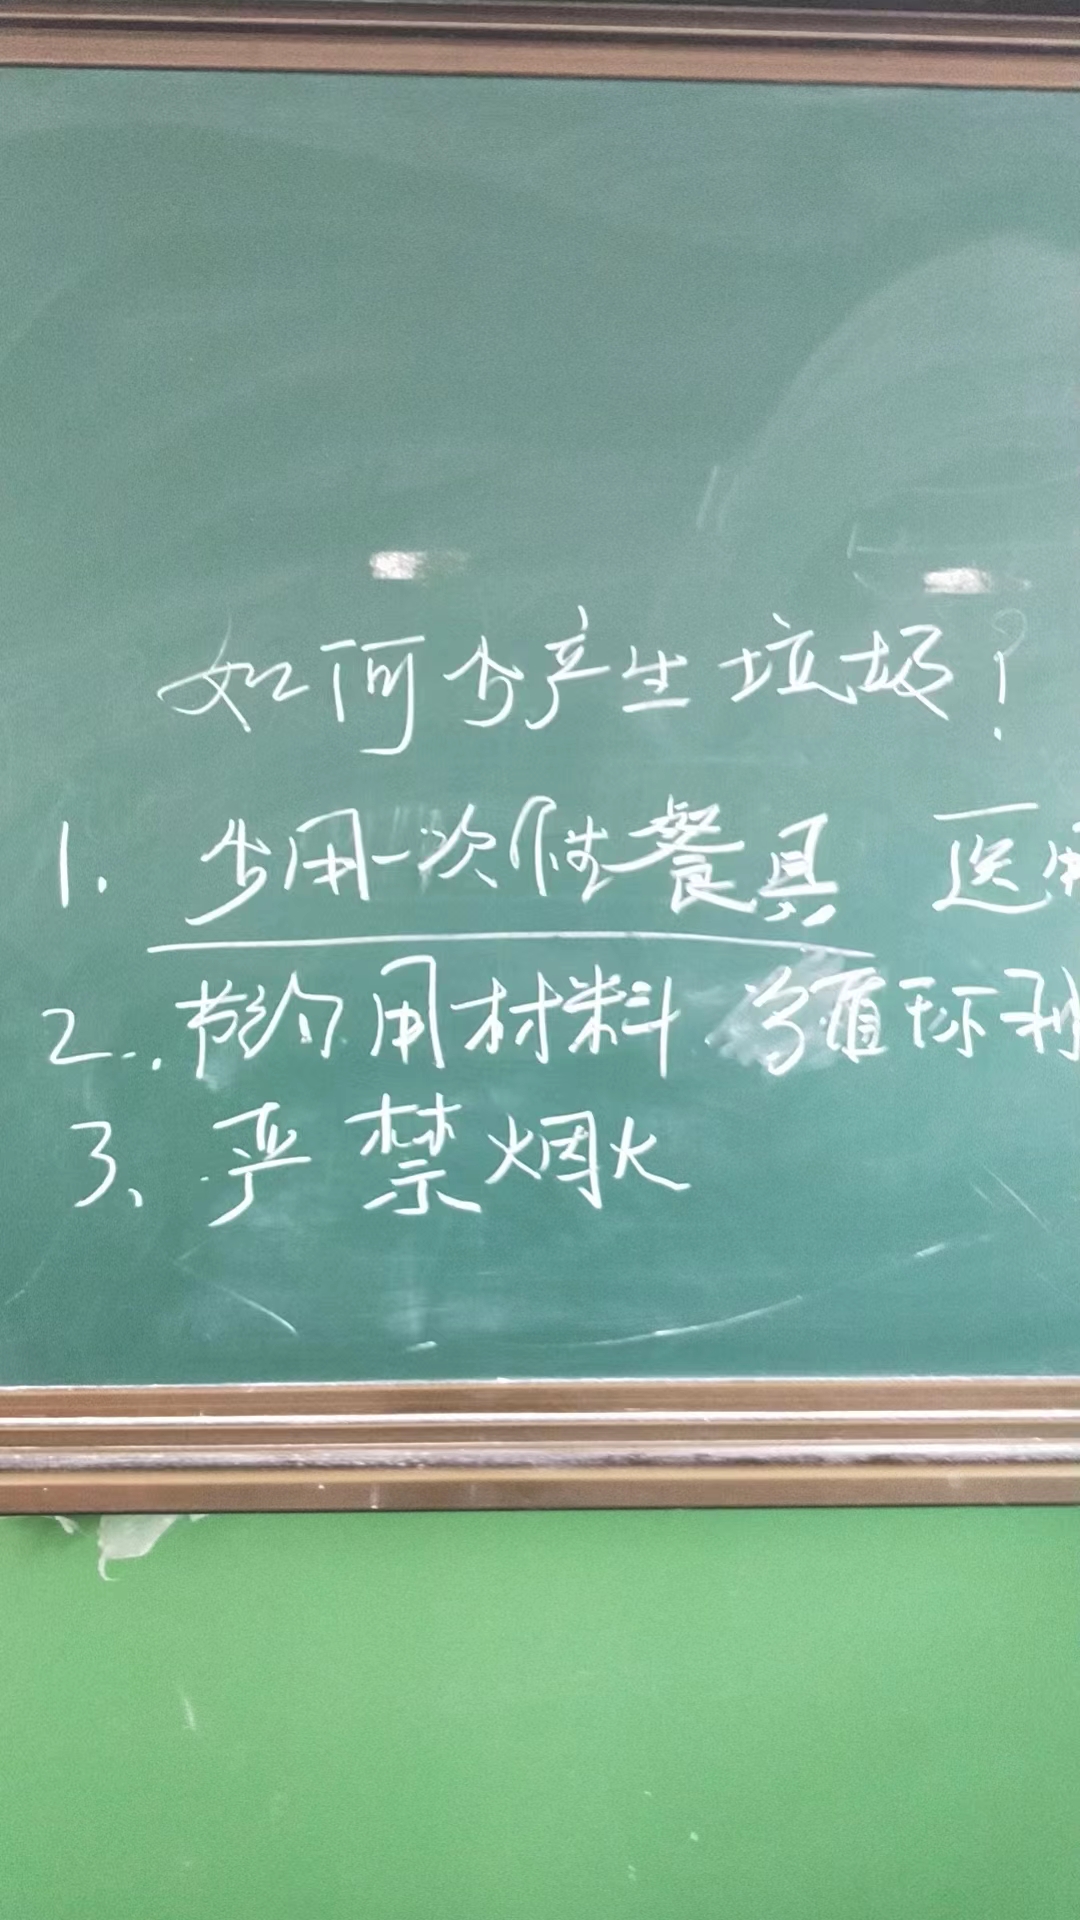 如何少产生垃圾?
1. 少用一次性餐具
2. 节约用材料 循环利
3、严禁烟火